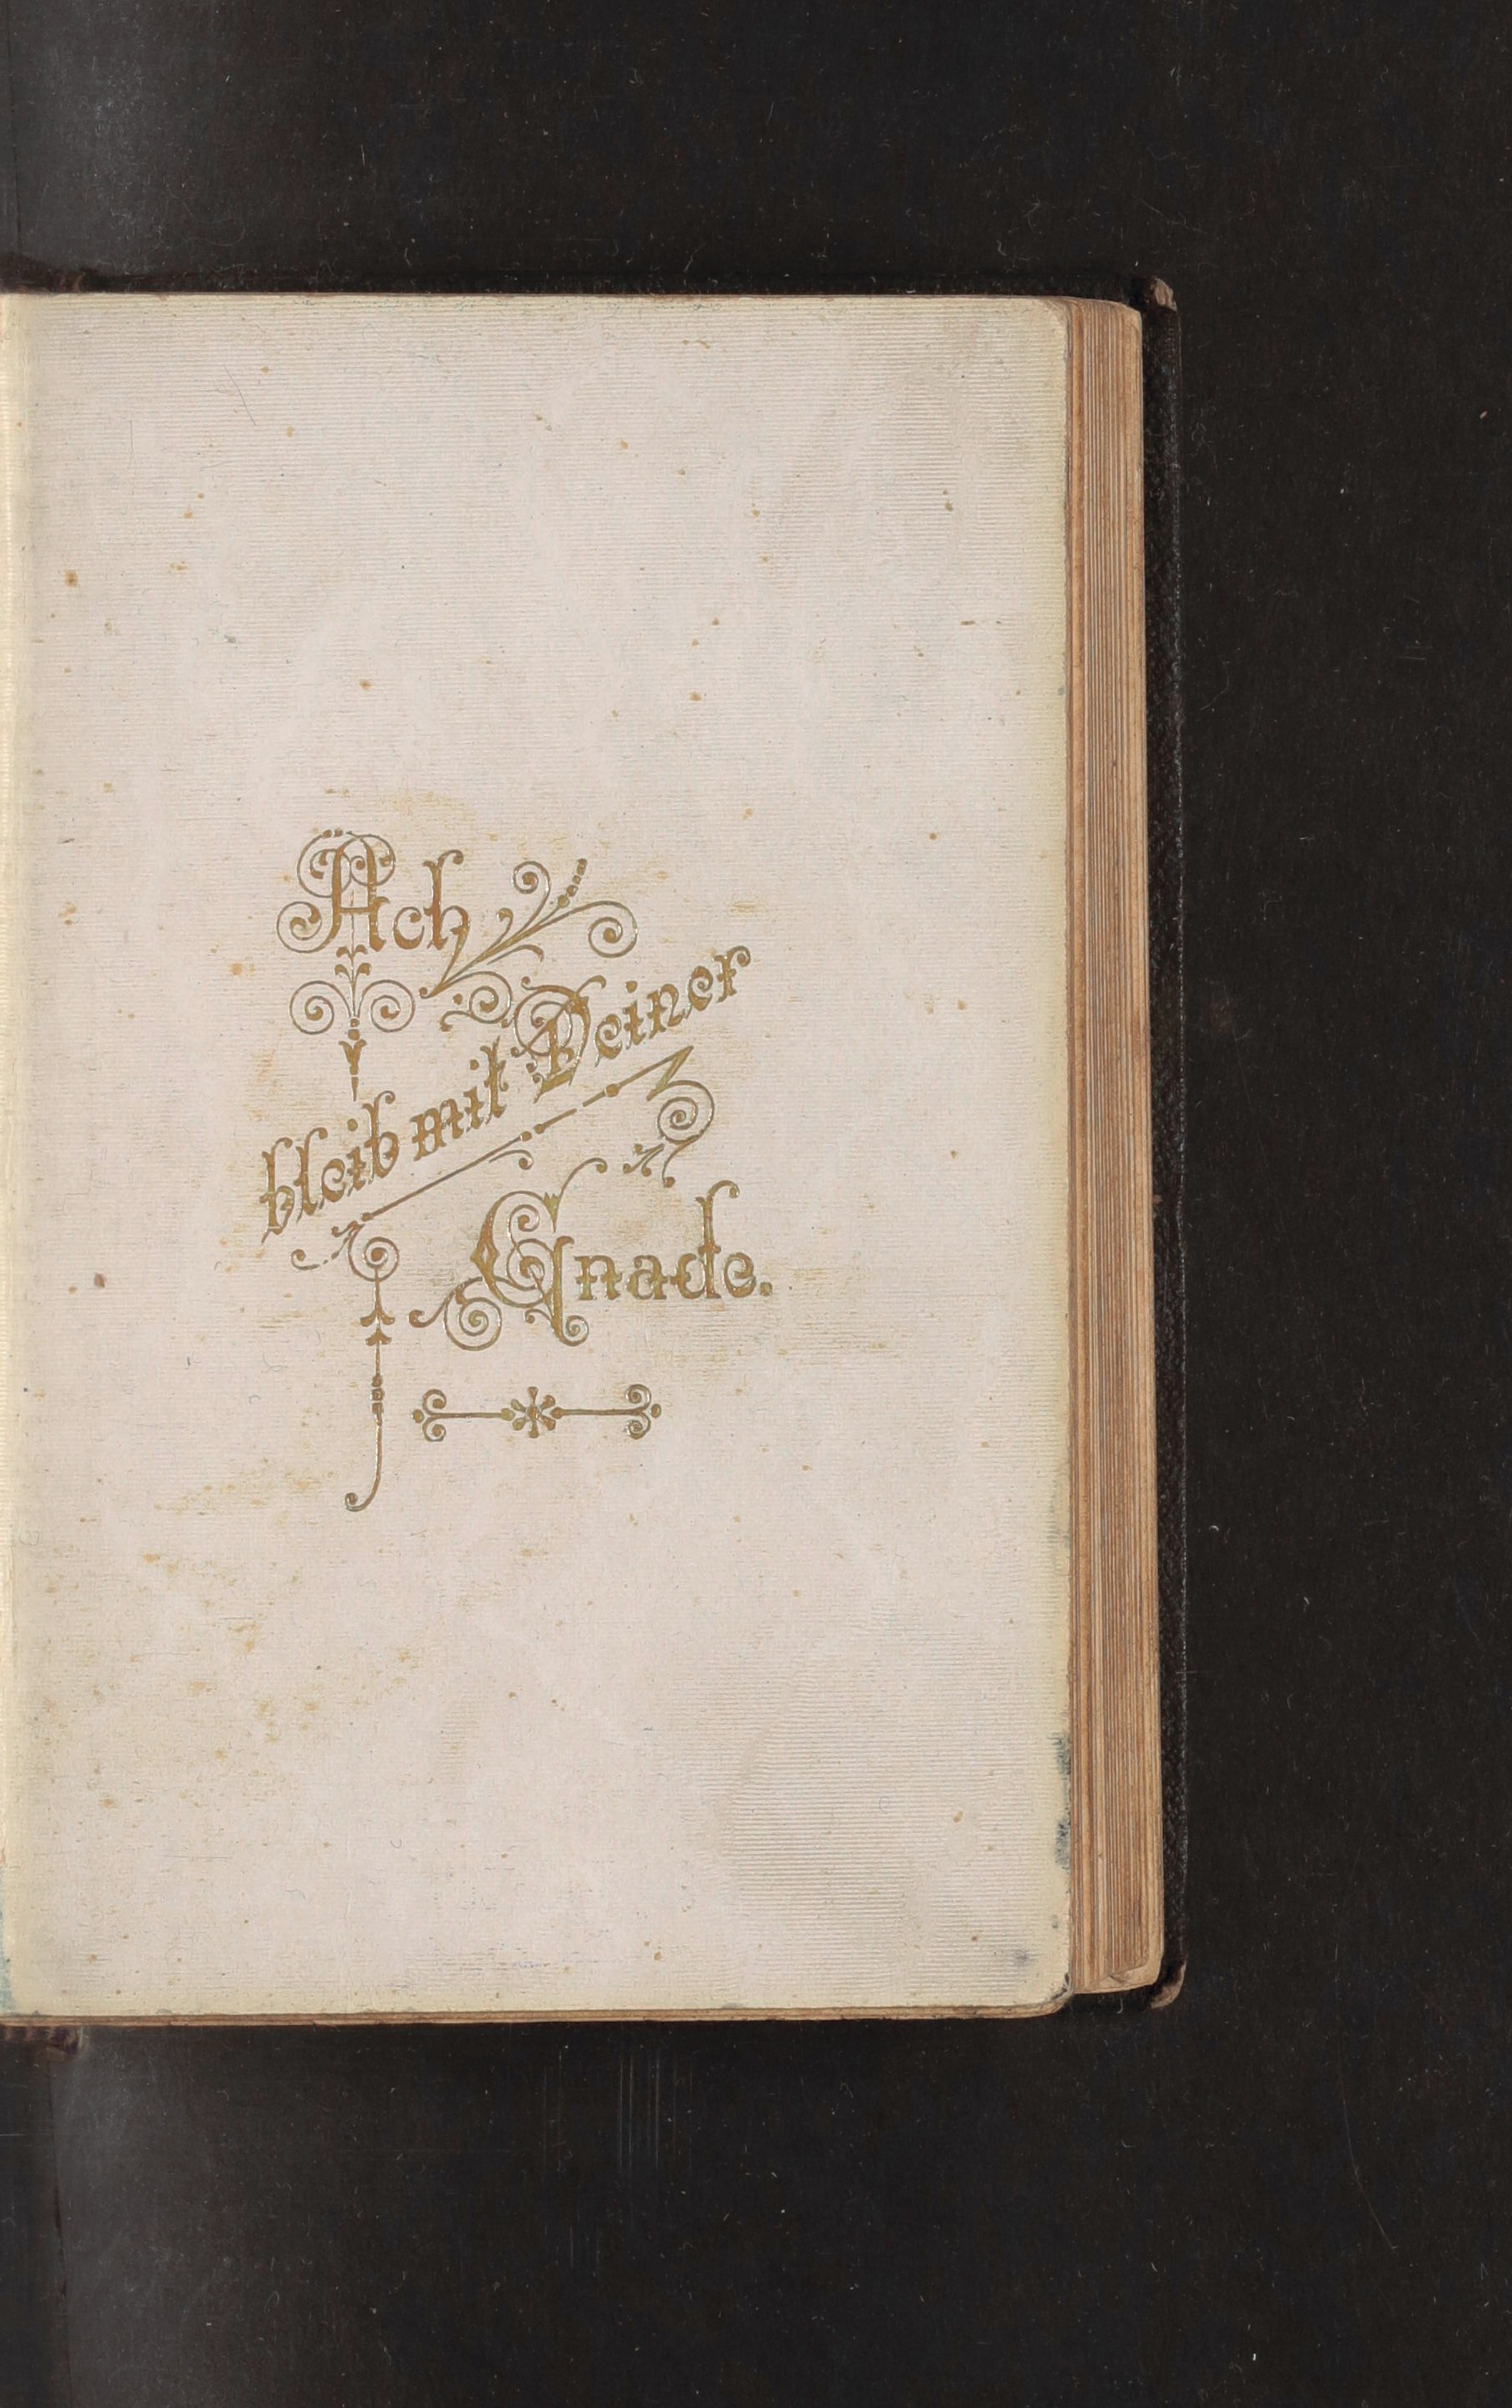 Ach
bleib mit Deiner
Gnade.